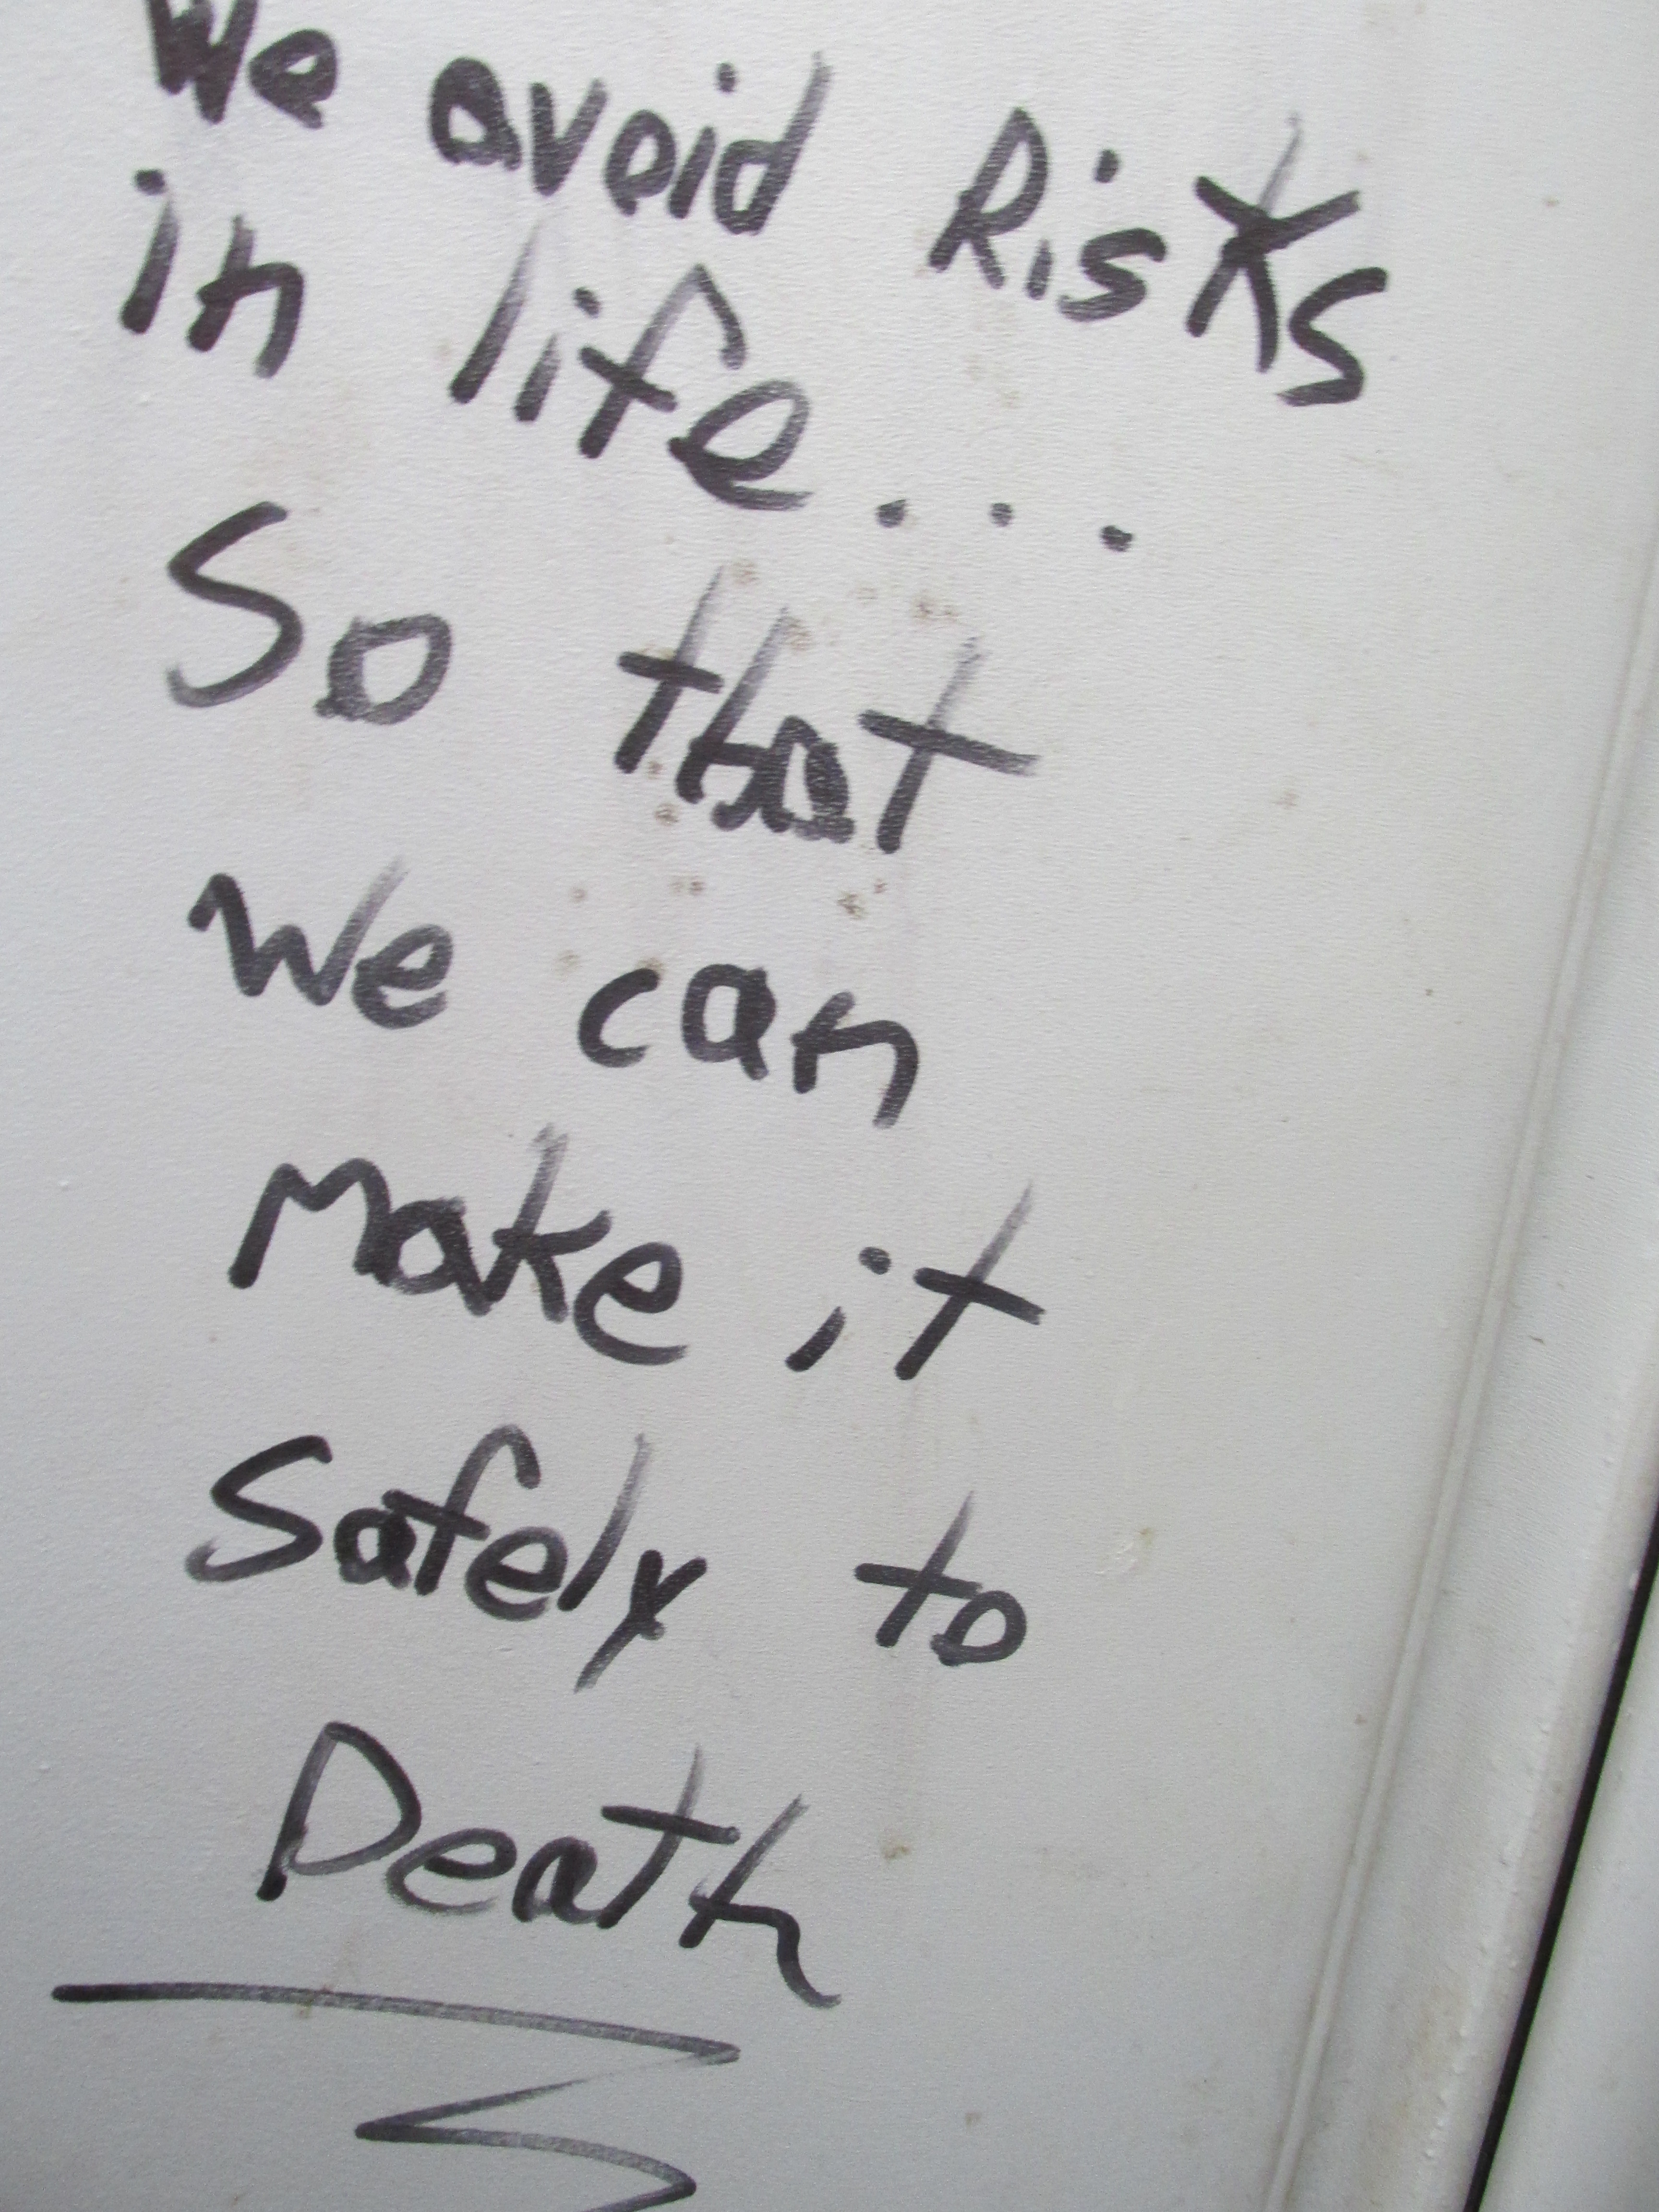 We avoid Risks
in life...
So that
We can
Make it
Safely to
Death